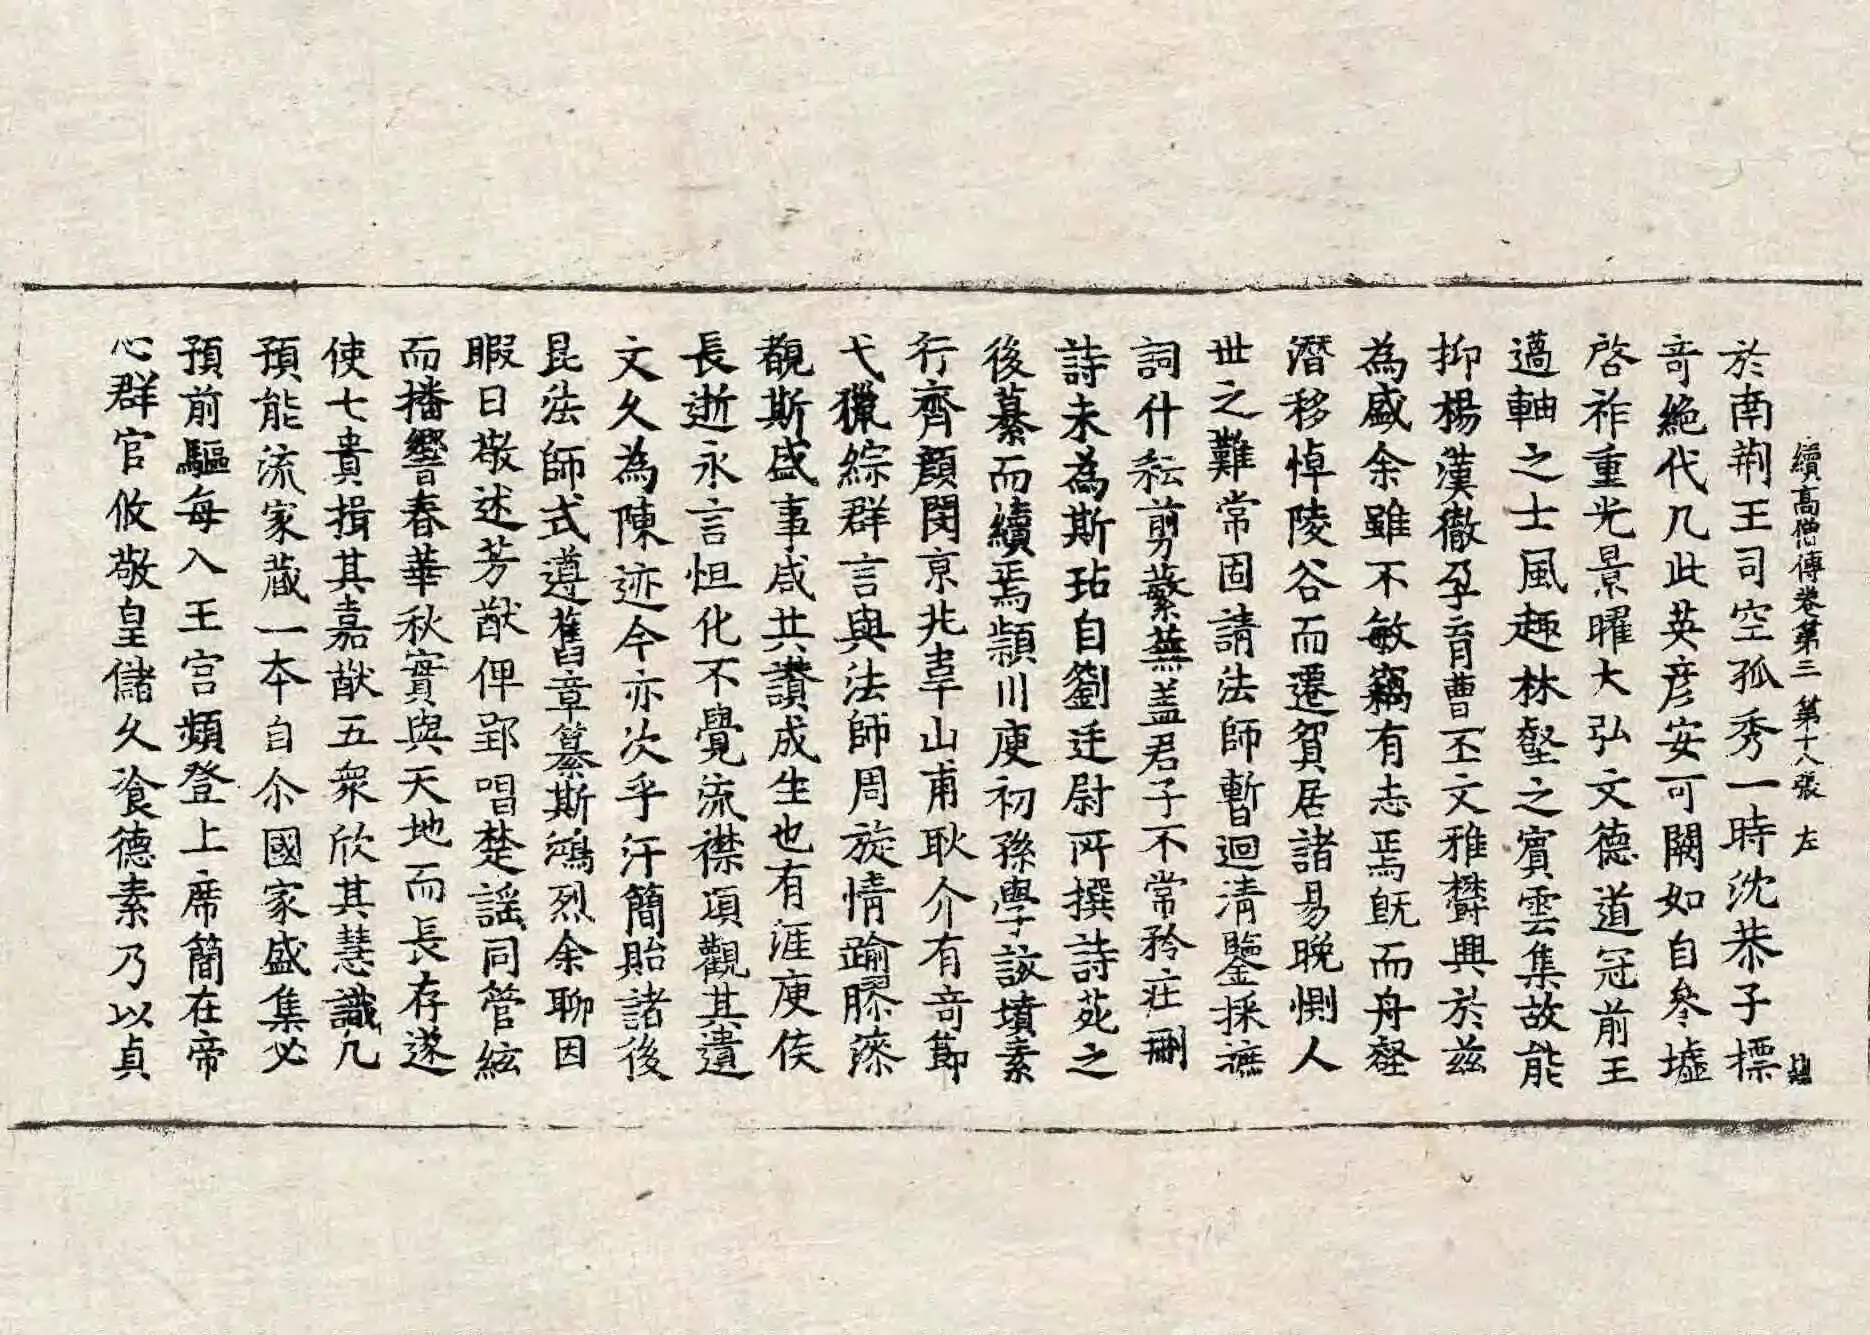 續高僧傳卷第三 第十八張 左
於南荆王司空孤秀一時沈恭子標
竒絶代凡此英彦安可闕如自參墟
啓祚重光景曜大弘文德道冠前王
薖軸之士風趣林壑之賓雲集故能
抑楊漢徹孕育曹丕文雅欝興於兹
為盛余雖不敏竊有志焉旣而舟壑
潛移悼陵谷而遷貿居諸易晚惻人
世之難常固請法師暫迴清鑒採摭
詞什耘剪蘩蕪盖君子不常矜莊刪
詩未為斯玷自劉廷尉所撰詩苑之
後纂而續焉頴川庾初孫學該墳素
行齊顔閔京兆韋山甫耿介有竒節
弋獵綜群言與法師周旋情踰膠漆
覩斯盛事咸共讚成生也有涯庾侯
長逝永言怛化不覺流襟項觀其遺
文久為陳迹今亦次乎汗簡貽諸後
昆法師式遵舊章纂斯鴻烈余聊因
暇日敬述芳猷俾郢唱楚謡同管絃
而播響春華秋實與天地而長存遂
使七貴揖其嘉猷五衆欣其慧識凡
預能流家藏一本自尒國家盛集必
預前驅每入王宫頻登上席簡在帝
心群官攸敬皇儲久飡德素乃以貞